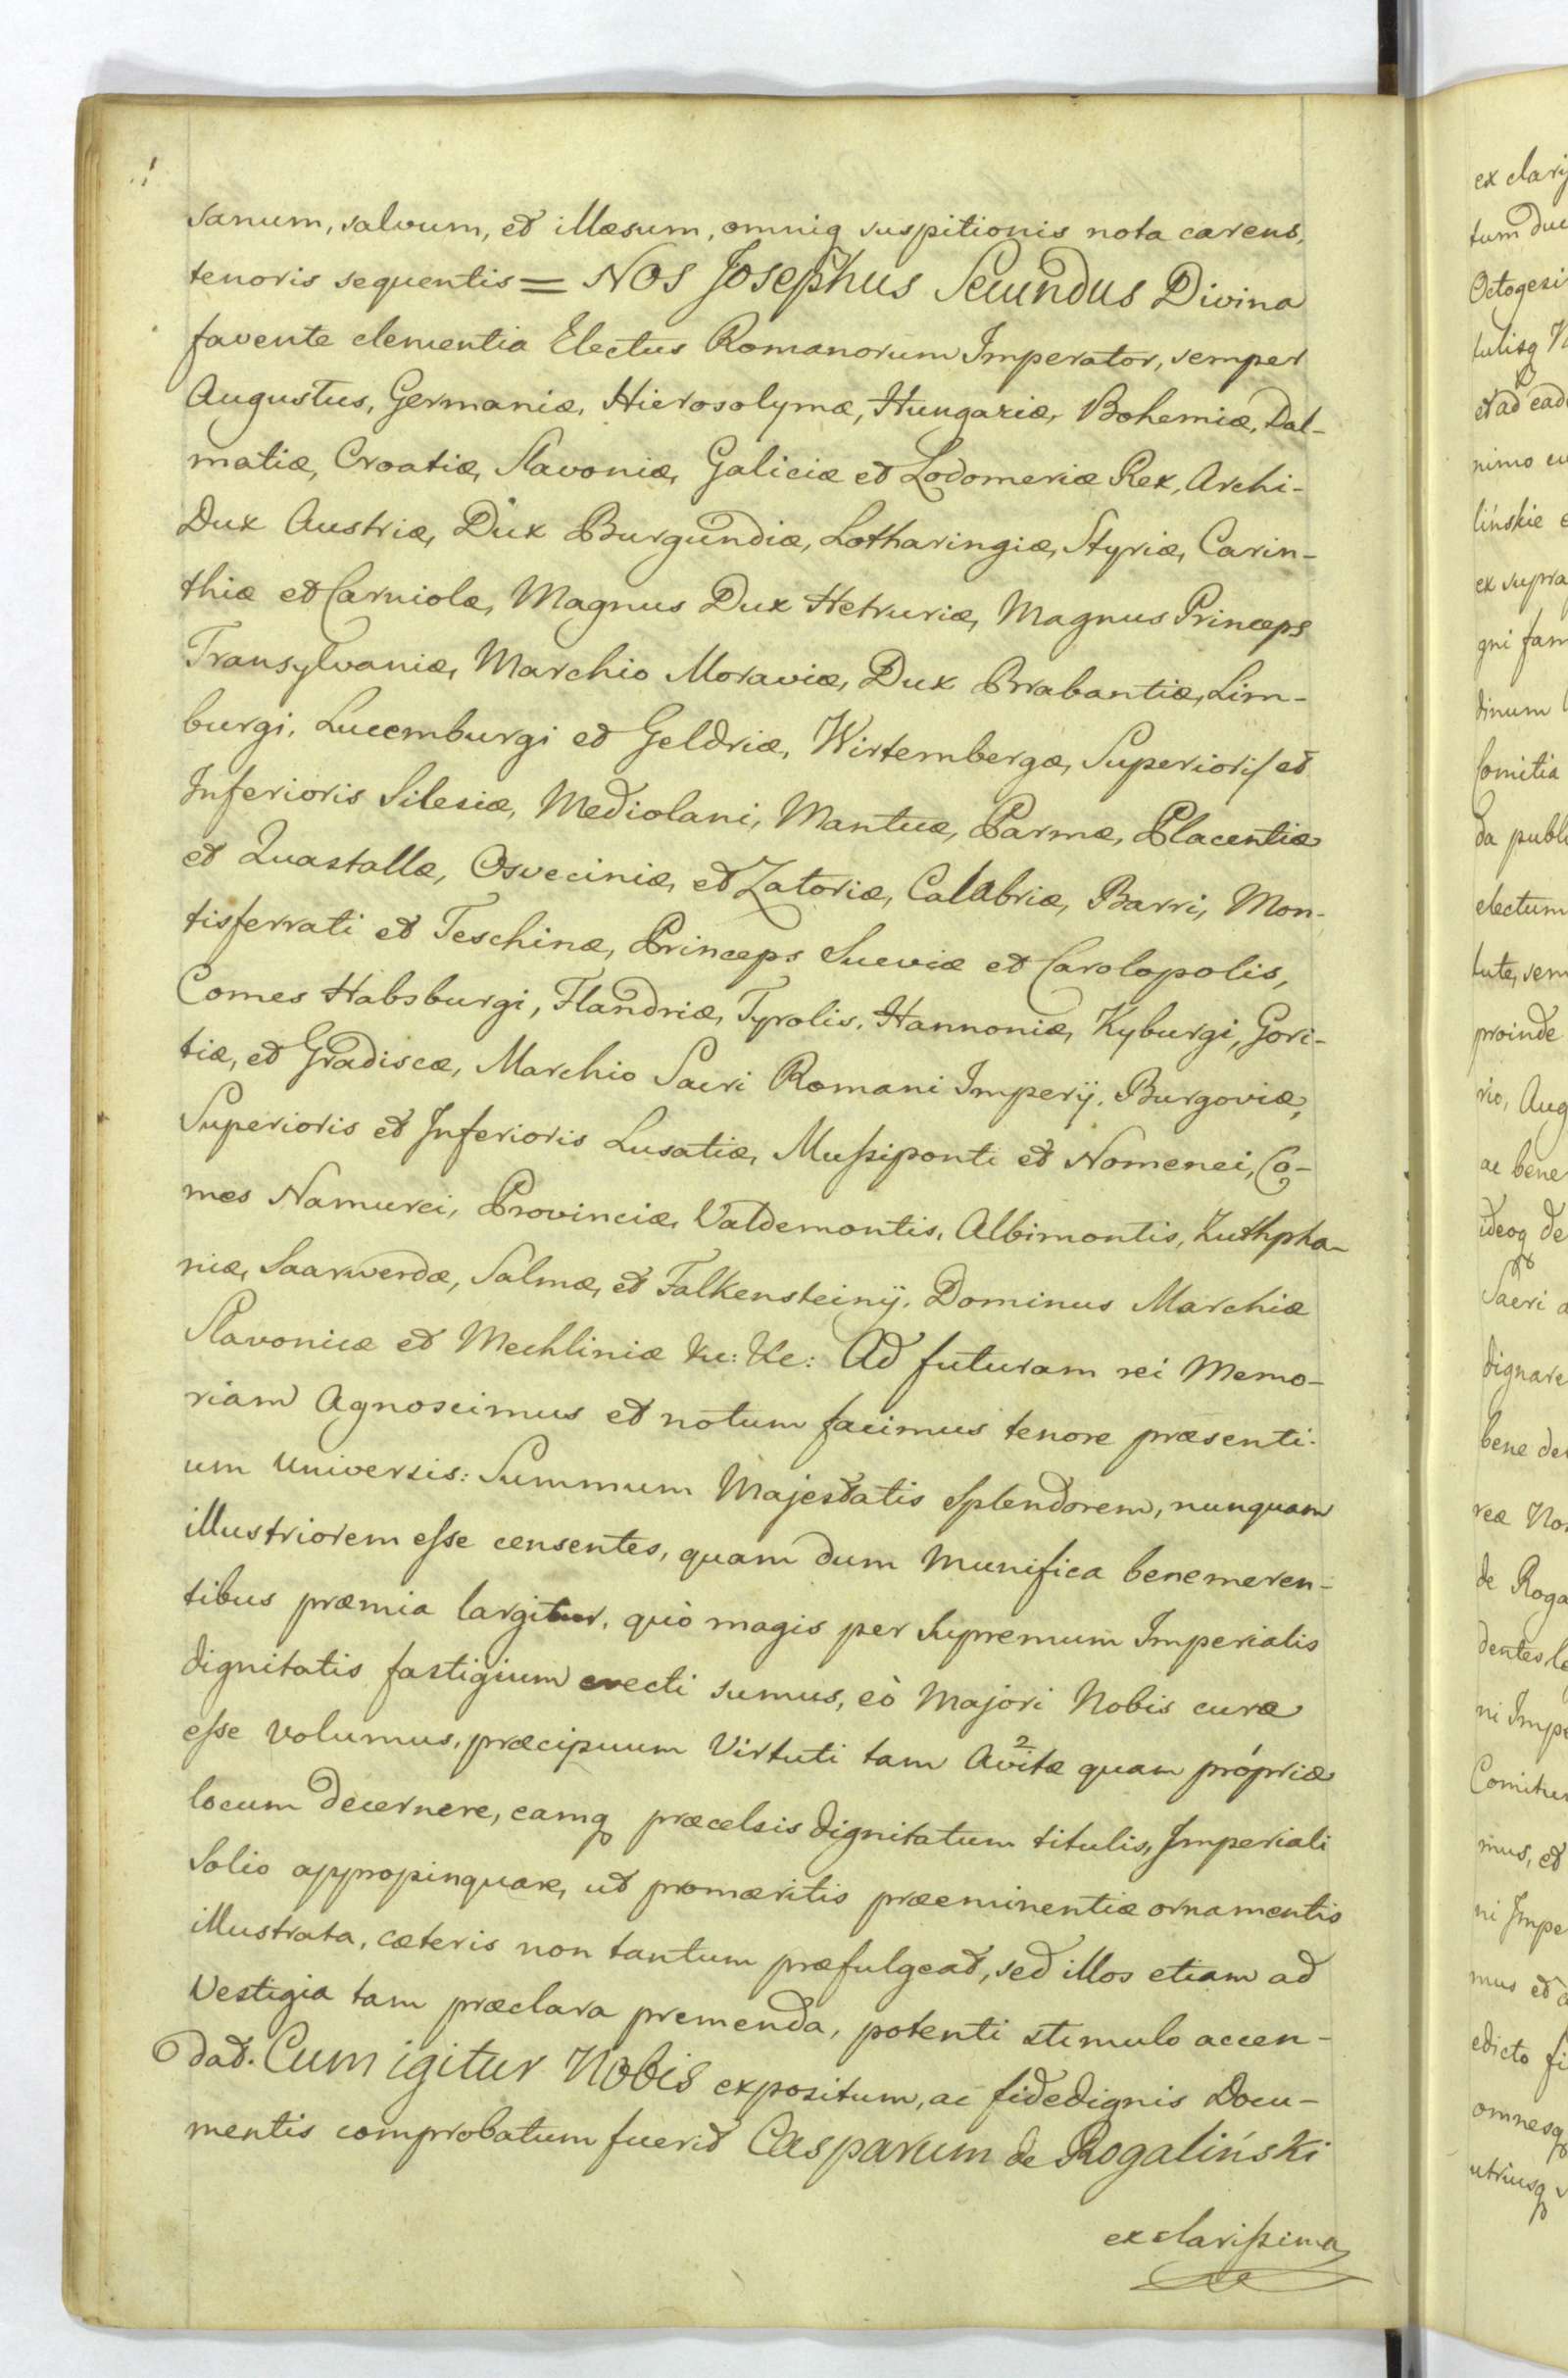 sanum, salvum, et illæsum, omniq suspitionis nota carens,
tenoris sequentis = NOS Josephus Secundus Divina
favente clementia Electus Romanorum Imperator, semper
Augustus, Germaniæ, Hierosolymæ, Hungariæ, Bohemiæ, Dal-
matiæ, Croatiæ, Slavoniæ, Galiciæ et Lodomeriæ Rex, Archi-
Dux Austriæ, Dux Burgundiæ, Lotharingiæ, Styriæ, Carin-
thiæ et Carniolæ, Magnus Dux Hetruriæ, Magnus Princeps
Transylvaniæ, Marchio Moraviæ, Dux Brabantiæ, Lim-
burgi, Lucemburgi et Geldriæ, Wirtembergæ, Superioris et
Inferioris Silesiæ, Mediolani, Mantuæ, Parmæ, Placentiæ
et Quastallæ, Osveciniæ, et Zatoriæ, Calabriæ, Barri, Mon-
tisferrati et Teschinæ, Princeps Sueviæ et Carolopolis,
Comes Habsburgi, Flandriæ, Tyrolis, Hannoniæ, Kyburgi, Gori-
tiæ, et Gradiscæ, Marchio Sacri Romani Imperij, Burgoviæ,
Superioris et Inferioris Lusatiæ, Mussiponti et Nomenei, Co-
mes Namurci, Provinciæ, Valdemontis, Albimontis, Zuthpha-
niæ, Saarwerdæ, Salmæ, et Falkensteinij, Dominus Marchiæ
Slavonicæ et Mechliniæ &c: &c: Ad futuram rei Memo-
riam Agnoscimus et notum facimus tenore præsenti-
um Universis: Summum Majestatis Splendorem, nunquam
illustriorem esse censentes, quam dum Munifica benemeren-
tibus præmia largitur, quò magis per Supremum Imperialis
dignitatis fastigium evecti sumus, eò Majori Nobis curæ
esse Volumus, præcipuum Virtuti tam Avitæ quam própriæ
locum decernere, eamq præcelsis dignitatum titulis, Imperiali
Solio appropinquare, ut promæritis præeminentiæ ornamentis
illustrata, cæteris non tantum præfulgeat, sed illos etiam ad
Vestigia tam præclara premenda, potenti stimulo accen-
dat. Cum igitur Nobis expositum, ac fidedignis Docu-
mentis comprobatum fuerit Casparum de Rogaliński
ex clarissima
ex clari
tum du
Octogesi
tulisq
et ad ead
nimo
lińskie
ex supra
gni fam
dinum
Comitia
da publ
electum
tute, sem
proinde
rio, Aug
ac bene
ideoq de
Sacri
dignare
bene de
reæ No
de Roga
dentes
ni Impe
Comitu
mus, et
ni Impe
mus et
edicto fi
omnesq
utriusq